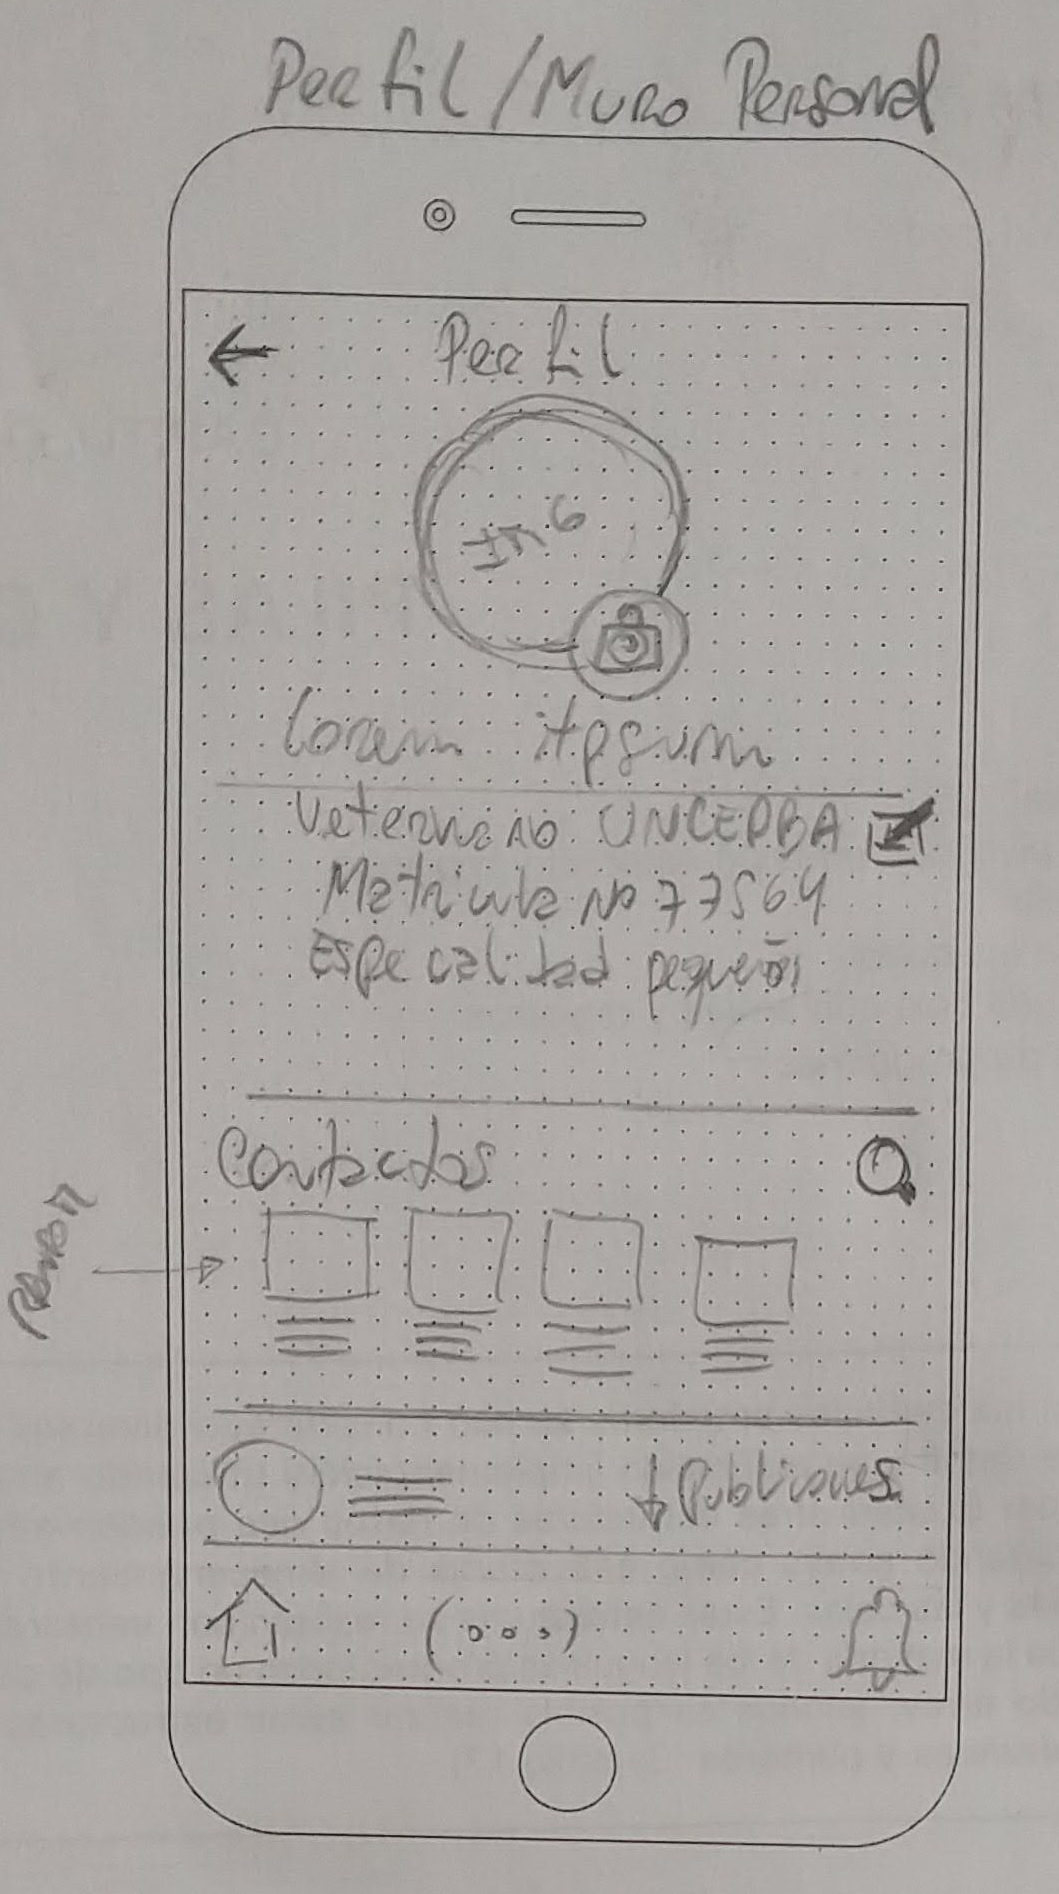 Perfil / Muro Personal
Perfil
Img
Lorem itpsum
Veterinario UNCEPBA
Matricula no 77564
Especialidad pequeños
Contactos
↓ Publiciones
(...)